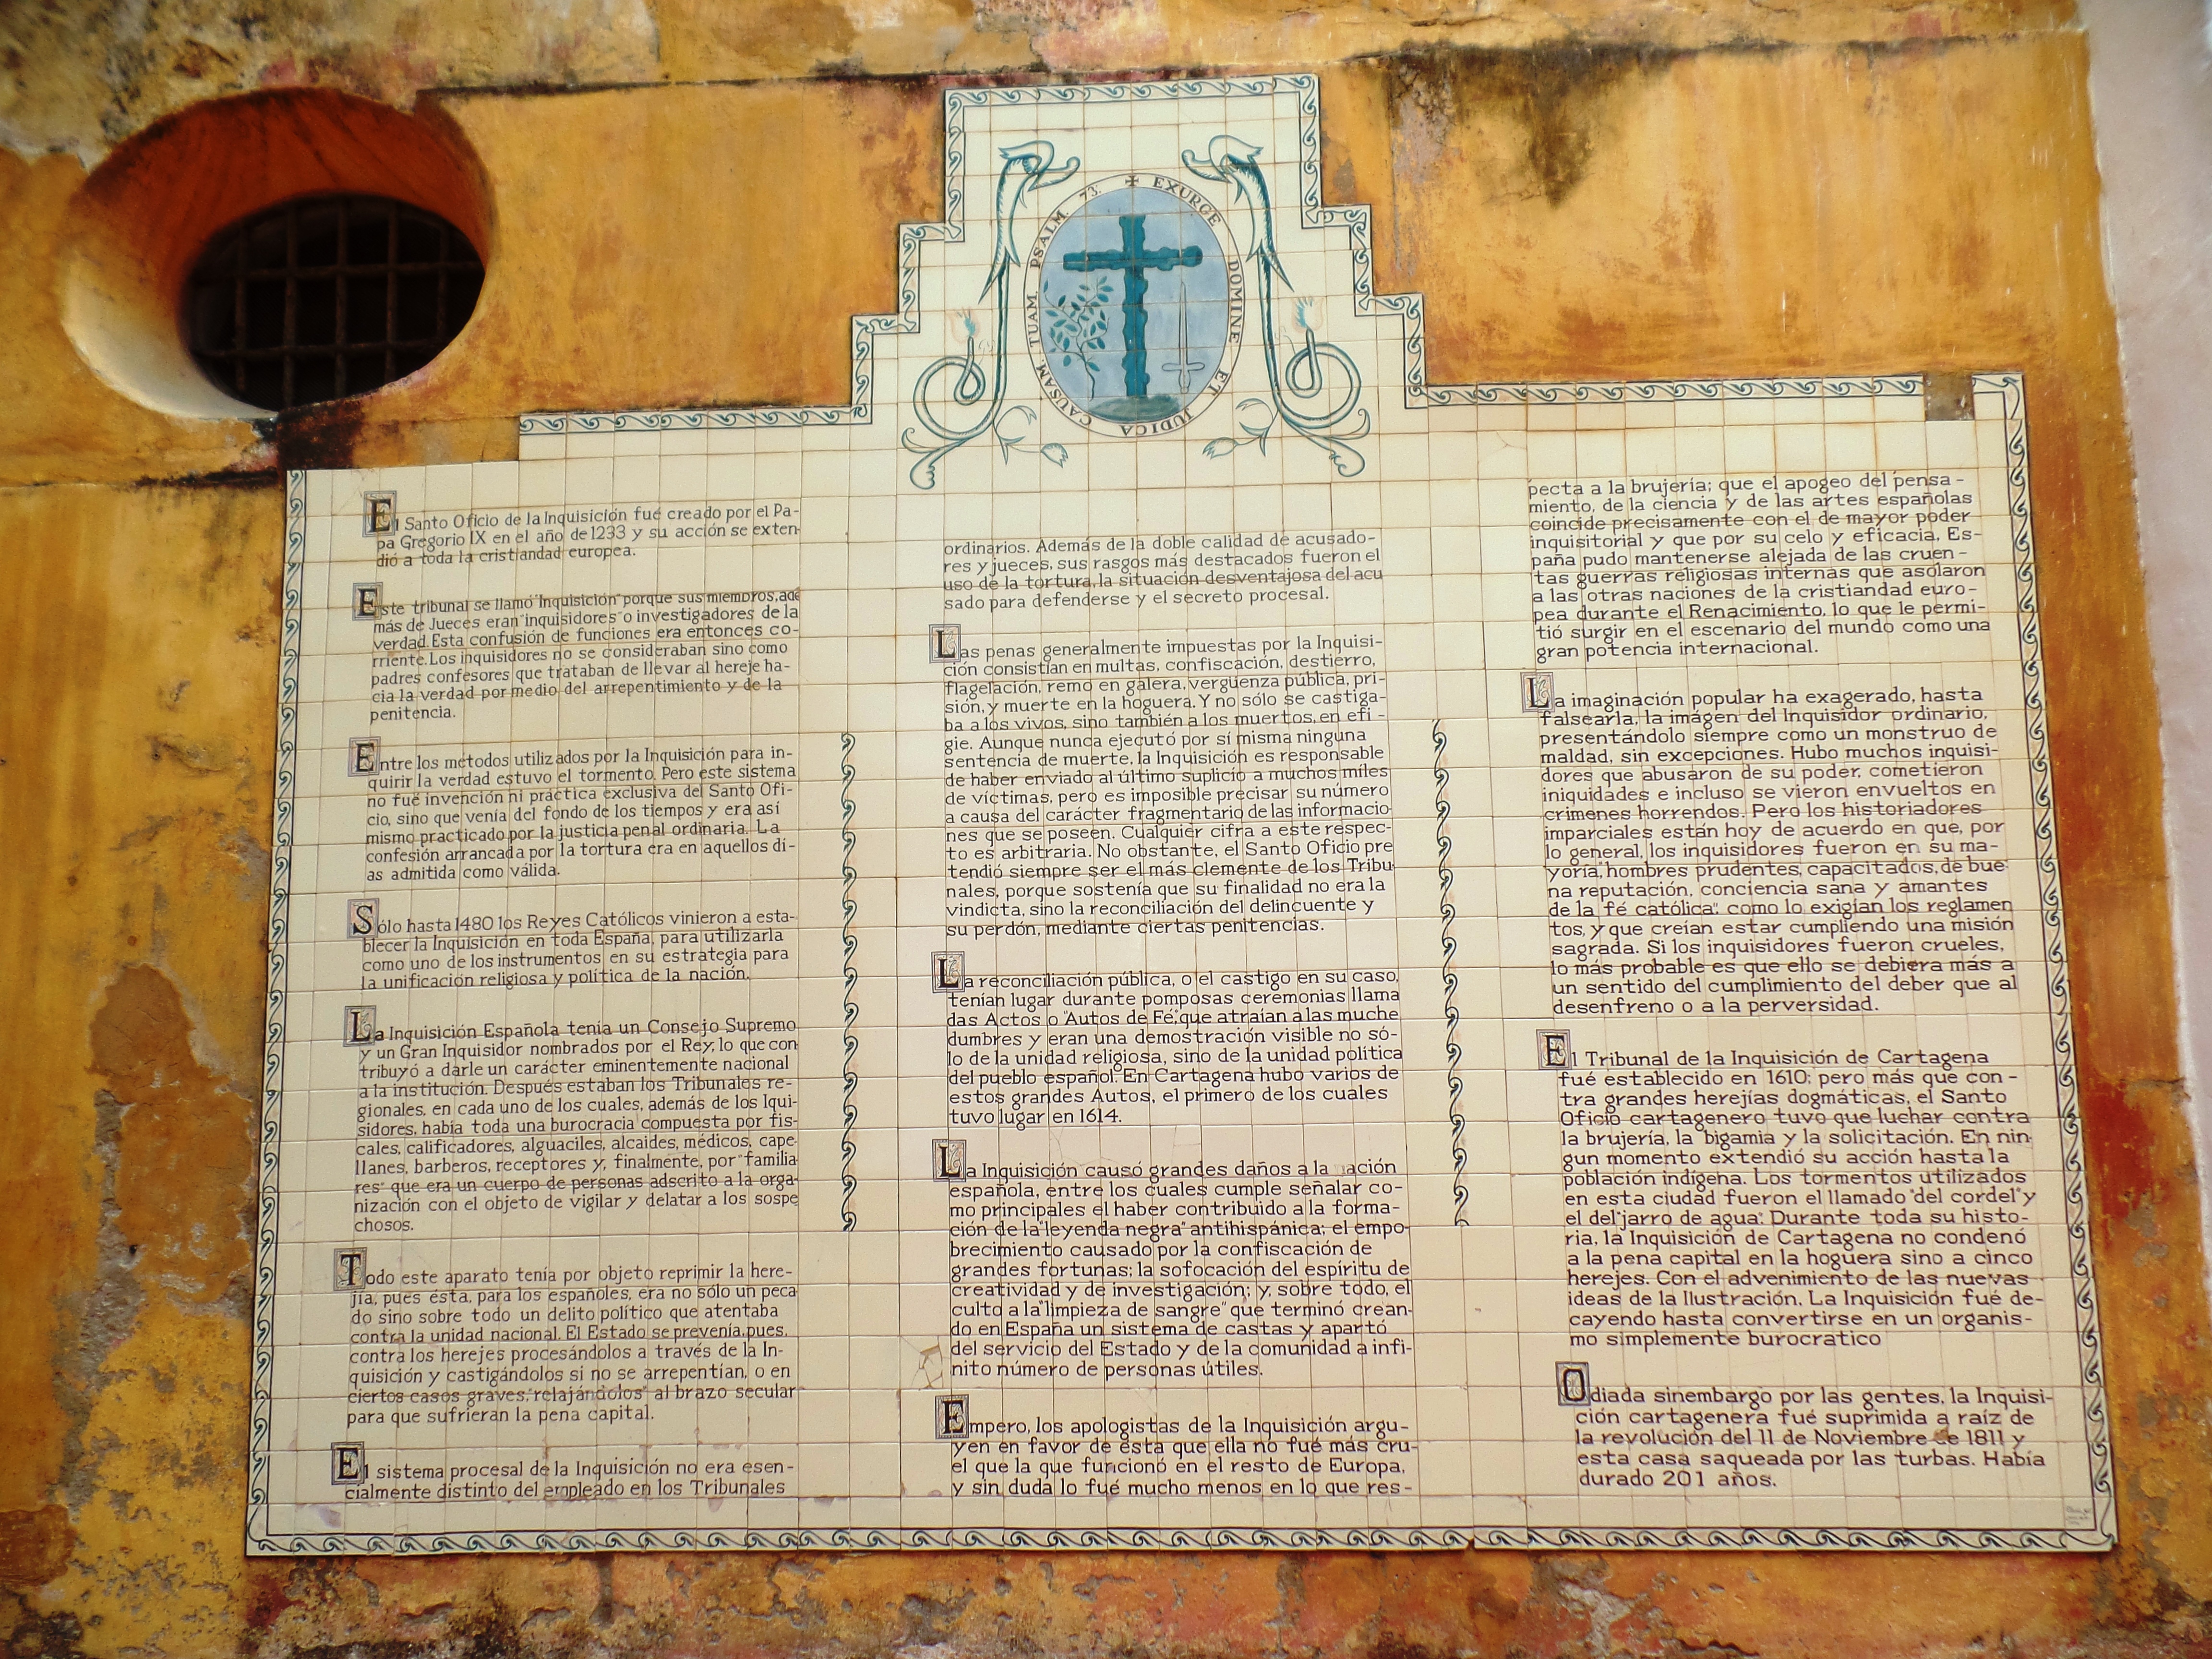 ✠ EXURGE DOMINE ET JUDICA CAUSAM TUAM. PSALM. 73.
El Santo Oficio de la Inquisición fué creado por el Pa-
pa Gregorio IX en el año de 1233 y su acción se exten-
dió a toda la cristiandad europea.
Este tribunal se llamó "Inquisición" porque sus miembros, ade
más de Jueces eran "inquisidores" o investigadores de la
verdad. Esta confusión de funciones era entonces co-
rriente. Los inquisidores no se consideraban sino como
padres confesores que trataban de llevar al hereje ha-
cia la verdad por medio del arrepentimiento y de la
penitencia.
Entre los métodos utilizados por la Inquisición para in-
quirir la verdad estuvo el tormento. Pero este sistema
no fué invención ni práctica exclusiva del Santo Ofi-
cio, sino que venía del fondo de los tiempos y era así
mismo practicado por la justicia penal ordinaria. La
confesión arrancada por la tortura era en aquellos dí-
as admitida como válida.
Sólo hasta 1480 los Reyes Católicos vinieron a esta-
blecer la Inquisición en toda España, para utilizarla
como uno de los instrumentos en su estrategia para
la unificación religiosa y política de la nación.
La Inquisición Española tenía un Consejo Supremo
y un Gran Inquisidor nombrados por el Rey, lo que con
tribuyó a darle un carácter eminentemente nacional
a la institución. Después estaban los Tribunales re-
gionales, en cada uno de los cuales, además de los Iqui-
sidores, había toda una burocracia compuesta por fis-
cales, calificadores, alguaciles, alcaides, médicos, cape-
llanes, barberos, receptores y, finalmente, por "familia
res" que era un cuerpo de personas adscrito a la orga-
nización con el objeto de vigilar y delatar a los sospe
chosos.
Todo este aparato tenía por objeto reprimir la here-
jía, pues ésta, para los españoles, era no sólo un peca
do sino sobre todo un delito político que atentaba
contra la unidad nacional. El Estado se prevenía, pues,
contra los herejes procesándolos a través de la In-
quisición y castigándolos si no se arrepentían, o en
ciertos casos graves, "relajándolos" al brazo secular
para que sufrieran la pena capital.
El sistema procesal de la Inquisición no era esen-
cialmente distinto del empleado en los Tribunales
ordinarios. Además de la doble calidad de acusado-
res y jueces, sus rasgos más destacados fueron el
uso de la tortura, la situación desventajosa del acu
sado para defenderse y el secreto procesal.
Las penas generalmente impuestas por la Inquisi-
ción consistían en multas, confiscación, destierro,
flagelación, remo en galera, vergüenza pública, pri-
sión, y muerte en la hoguera. Y no sólo se castiga-
ba a los vivos, sino también a los muertos, en efi-
gie. Aunque nunca ejecutó por sí misma ninguna
sentencia de muerte, la Inquisición es responsable
de haber enviado al último suplicio a muchos miles
de víctimas, pero es imposible precisar su número
a causa del carácter fragmentario de las informacio-
nes que se poseen. Cualquier cifra a este respec-
to es arbitraria. No obstante, el Santo Oficio pre
tendió siempre ser el más clemente de los Tribu-
nales, porque sostenía que su finalidad no era la
vindicta, sino la reconciliación del delincuente y
su perdón, mediante ciertas penitencias.
La reconciliación pública, o el castigo en su caso,
tenían lugar durante pomposas ceremonias llama
das Actos o "Autos de Fé", que atraían a las muche
dumbres y eran una demostración visible no só-
lo de la unidad religiosa, sino de la unidad política
del pueblo español. En Cartagena hubo varios de
estos grandes Autos, el primero de los cuales
tuvo lugar en 1614.
La Inquisición causó grandes daños a la  ación
española, entre los cuales cumple señalar co-
mo principales el haber contribuido a la forma-
ción de la "leyenda negra" antihispánica; el empo-
brecimiento causado por la confiscación de
grandes fortunas; la sofocación del espíritu de
creatividad y de investigación; y, sobre todo, el
culto a la "limpieza de sangre" que terminó crean-
do en España un sistema de castas y apartó
del servicio del Estado y de la comunidad a infi-
nito número de personas útiles.
Empero, los apologistas de la Inquisición argu-
yen en favor de ésta que ella no fué más cru-
el que la que funcionó en el resto de Europa,
y sin duda lo fué mucho menos en lo que res-
pecta a la brujería; que el apogeo del pensa-
miento, de la ciencia y de las artes españolas
coincide precisamente con el de mayor poder
inquisitorial y que por su celo y eficacia, Es-
paña pudo mantenerse alejada de las cruen-
tas guerras religiosas internas que asolaron
a las otras naciones de la cristiandad euro-
pea durante el Renacimiento, lo que le permi-
tió surgir en el escenario del mundo como una
gran potencia internacional.
La imaginación popular ha exagerado, hasta
falsearla, la imágen del Inquisidor ordinario,
presentándolo siempre como un monstruo de
maldad, sin excepciones. Hubo muchos inquisi-
dores que abusaron de su poder, cometieron
iniquidades e incluso se vieron envueltos en
crímenes horrendos. Pero los historiadores
imparciales están hoy de acuerdo en que, por
lo general, los inquisidores fueron en su ma-
yoría, hombres prudentes, capacitados, de bue-
na reputación, conciencia sana y amantes
de la fé católica", como lo exigían los reglamen
tos, y que creían estar cumpliendo una misión
sagrada. Si los inquisidores fueron crueles,
lo más probable es que ello se debiera más a
un sentido del cumplimiento del deber que al
desenfreno o a la perversidad.
El Tribunal de la Inquisición de Cartagena
fué establecido en 1610; pero más que con-
tra grandes herejías dogmáticas, el Santo
Oficio cartagenero tuvo que luchar contra
la brujería, la bigamia y la solicitación. En nin-
gun momento extendió su acción hasta la
población indígena. Los tormentos utilizados
en esta ciudad fueron el llamado "del cordel" y
el del "jarro de agua". Durante toda su histo-
ria, la Inquisición de Cartagena no condenó
a la pena capital en la hoguera sino a cinco
herejes. Con el advenimiento de las nuevas
ideas de la Ilustración, La Inquisición fué de-
cayendo hasta convertirse en un organis-
mo simplemente burocratico
Odiada sinembargo por las gentes, la Inquisi-
ción cartagenera fué suprimida a raíz de
la revolución del 11 de Noviembre de 1811 y
esta casa saqueada por las turbas. Había
durado 201 años.